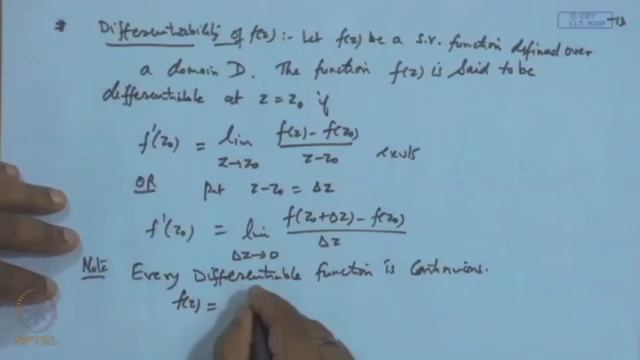 © CET
I.I.T. KGP
-13
* Differentiability of f(z) :- Let f(z) be a s.v. function defined over
a domain D. The function f(z) is said to be
differentiable at z = z₀ if
f'(z₀) = lim z→z₀ f(z) - f(z₀) / z - z₀ exists
OR put z - z₀ = Δz
f'(z₀) = lim Δz→0 f(z₀+Δz) - f(z₀) / Δz
Note Every Differentiable function is continuous.
f(z) =
NPTEL